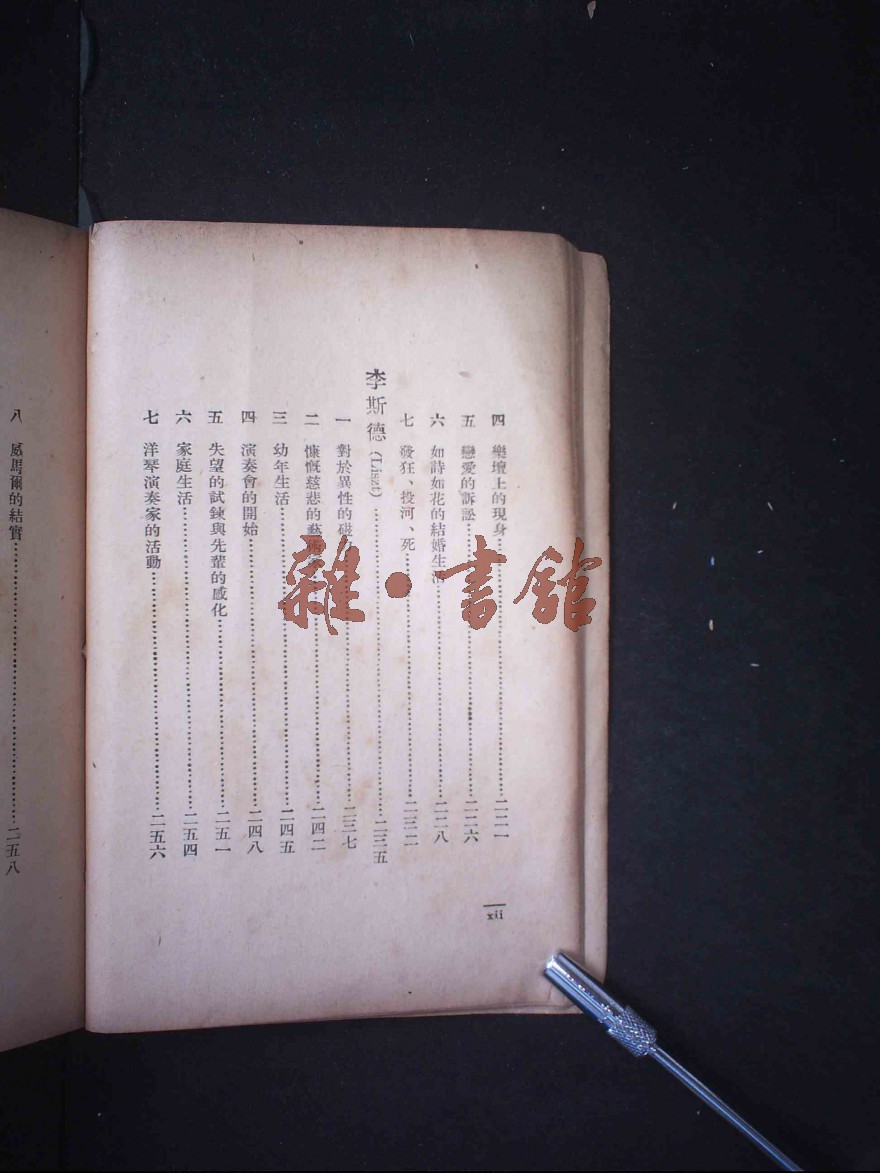 四 樂壇上的現身…………二二一
五 戀愛的訴訟…………二二六
六 如詩如花的結婚生活…………二二八
七 發狂、投河、死…………二三二
李斯德 (Liszt)…………二三五
一 對於異性的磁…………二三七
二 慷慨慈悲的藝術…………二四二
三 幼年生活…………二四五
四 演奏會的開始…………二四八
五 失望的試鍊與先輩的感化…………二五一
六 家庭生活…………二五四
七 洋琴演奏家的活動…………二五六
xii
八 威馬爾的結實…………二五八
雜·書館